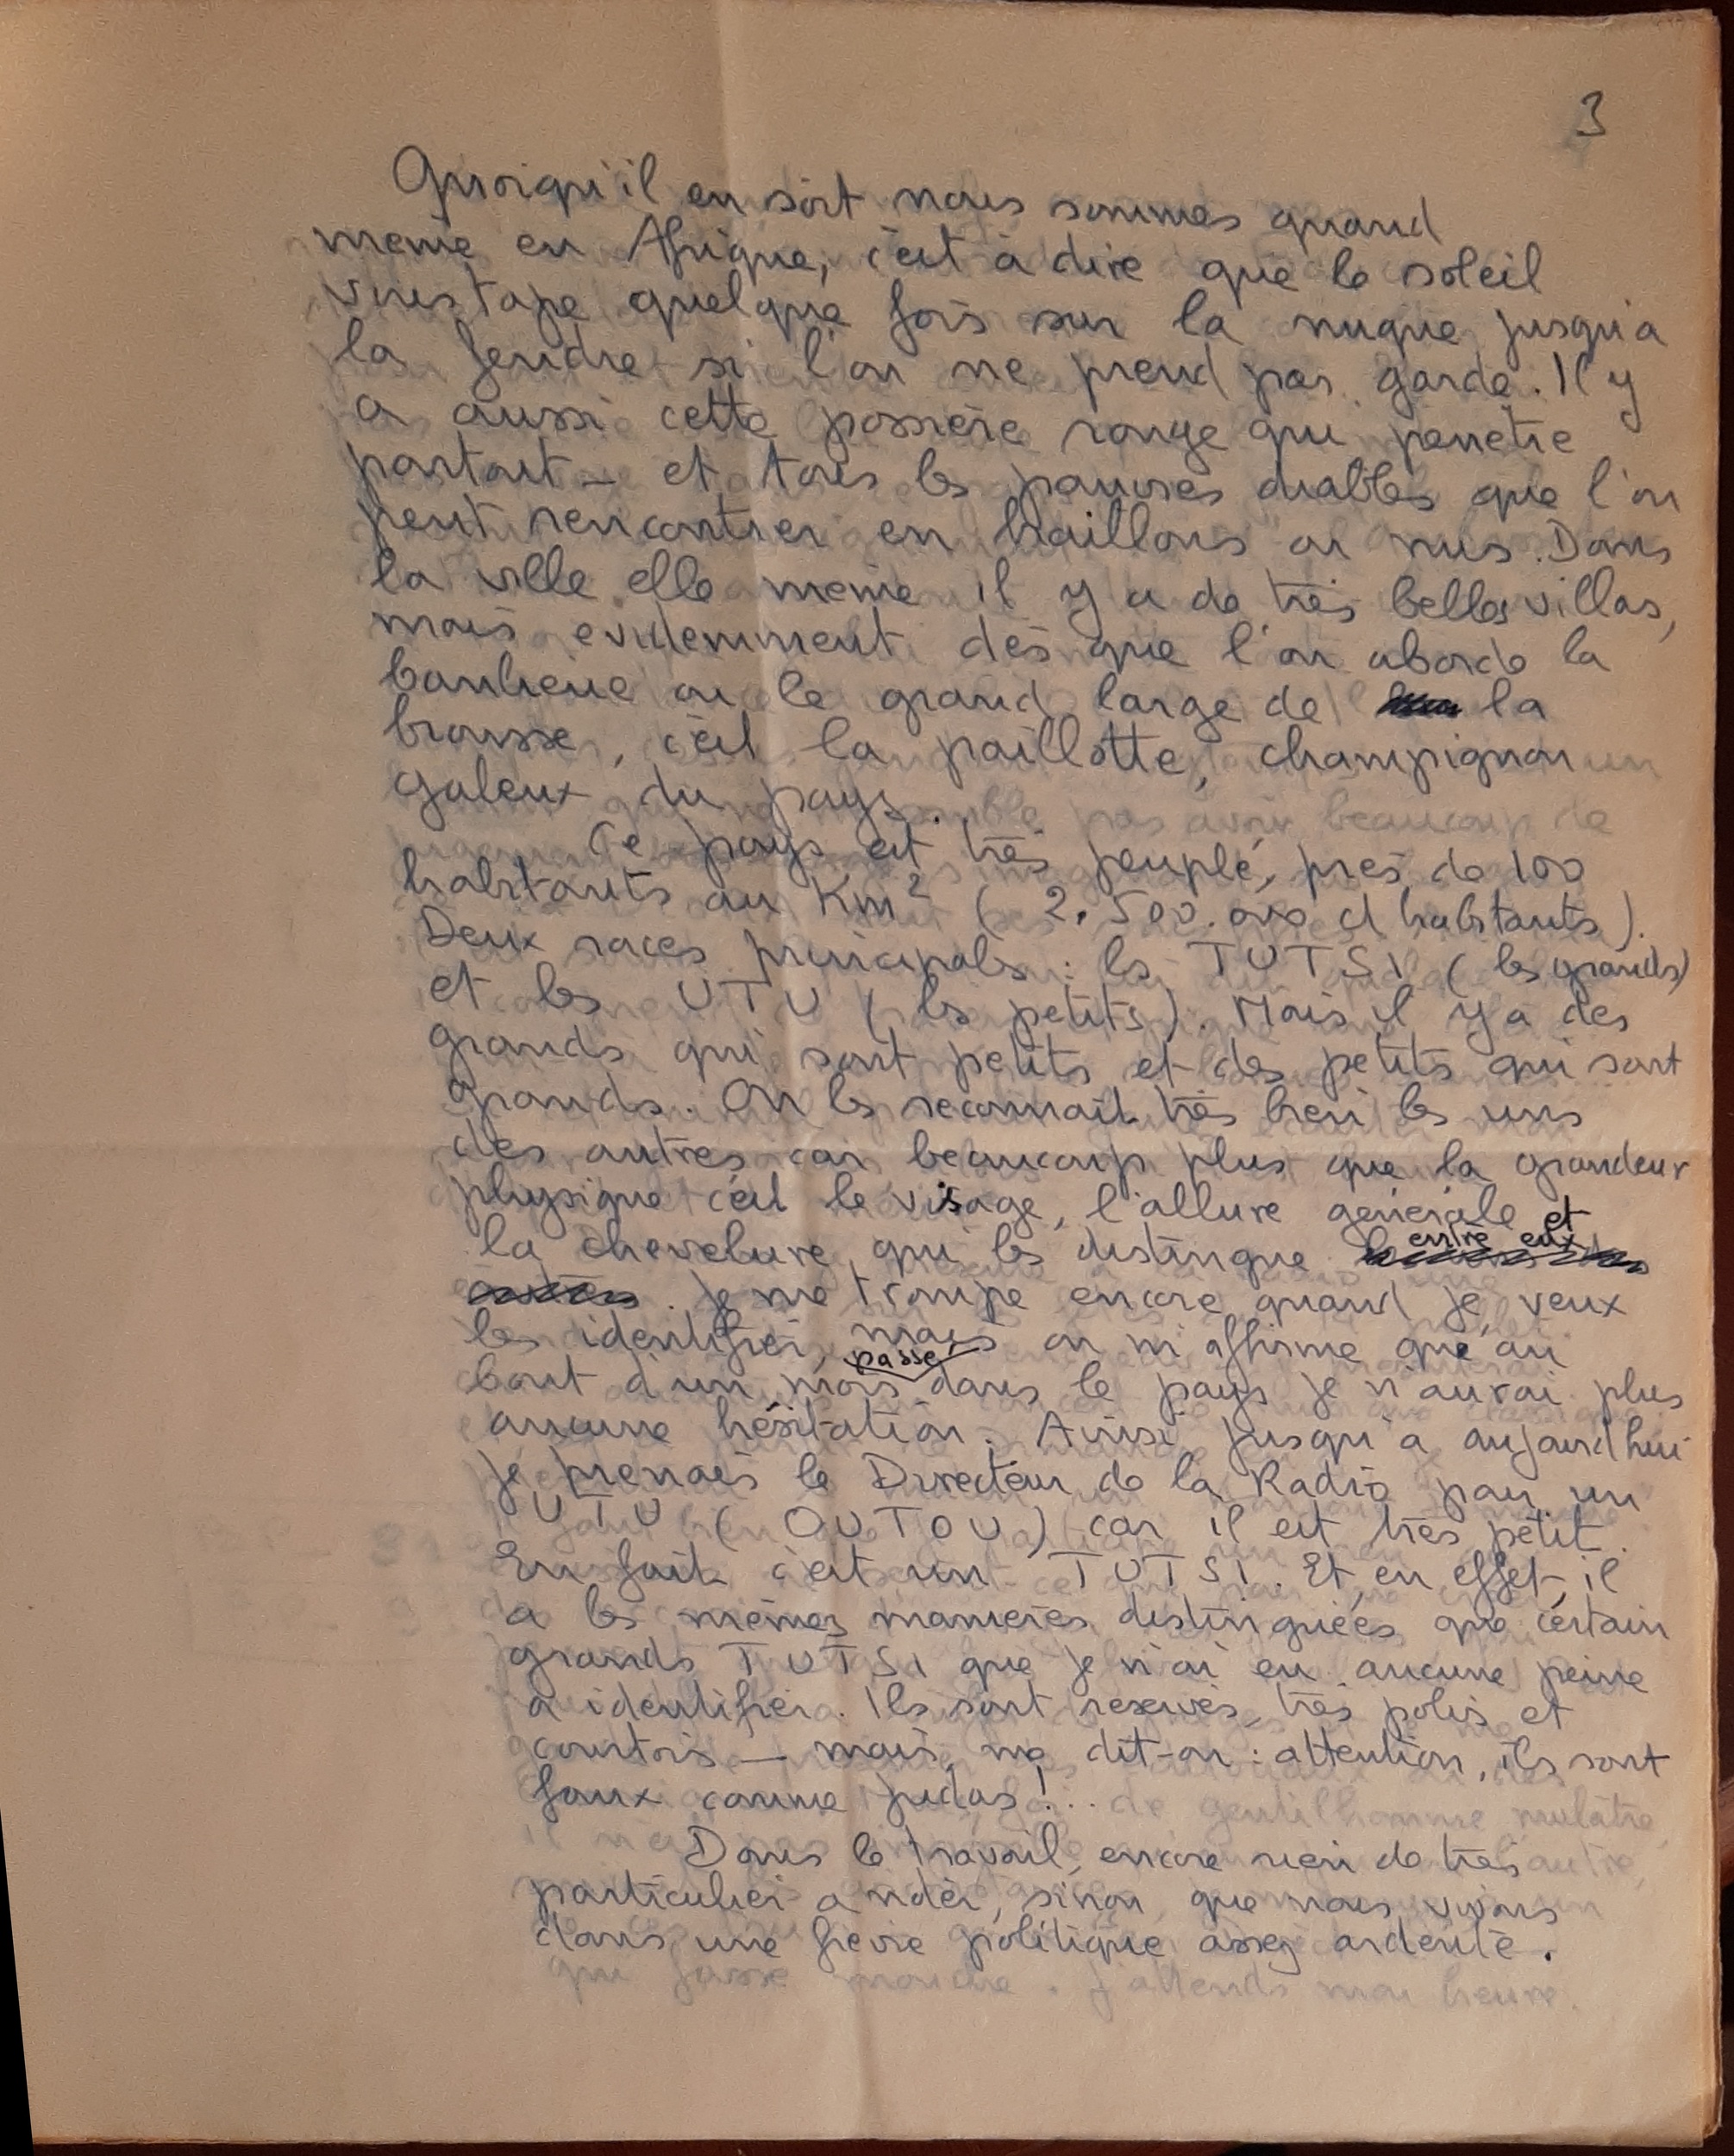 3
Quoiqu'il en soit nous sommes quand
meme en Afrique, c'est à dire que le soleil
vous tape quelque fois sur la nuque jusqu'a
la fendre si l'on ne prend pas garde. Il y
a aussi cette possière rouge qui penètre
partout — et tous les pauvres diables que l'on
peut rencontrer en haillons ou nus. Dans
la ville elle meme il y a de très belles villas,
mais evidemment dès que l'on aborde la
banlieue ou le grand large de la
brousse, c'est la paillotte, champignon
galeux du pays.
Ce pays est très peuplé, près de 100
habitants au Km² (2.500.000 d'habitants).
Deux races principales : les TUTSI (les grands)
et les UTU (les petits). Mais il y a des
grands qui sont petits et des petits qui sont
grands. On les reconnait très bien les uns
des autres car beaucoup plus que la grandeur
physique c'est le visage, l'allure générale et
la chevelure qui les distingue entre eux
. Je me trompe encore quand je veux
les identifier, mais on m'affirme qu'au
bout d'un mois passé dans le pays je n'aurai plus
aucune hésitation. Ainsi jusqu'a aujourd'hui
je prenais le Directeur de la Radio pour un
UTU (OUTOU) car il est très petit.
En fait c'est un TUTSI. Et en effet, il
a les mêmes manieres distinguées que certain
grands TUTSI que je n'ai eu aucune peine
a identifier. Ils sont reservés, très polis et
courtois — mais, me dit-on : attention, ils sont
faux comme judas !..
Dans le travail, encore rien de très
particulier a noter, sinon que nous vivons
dans une fievre politique assez ardente.